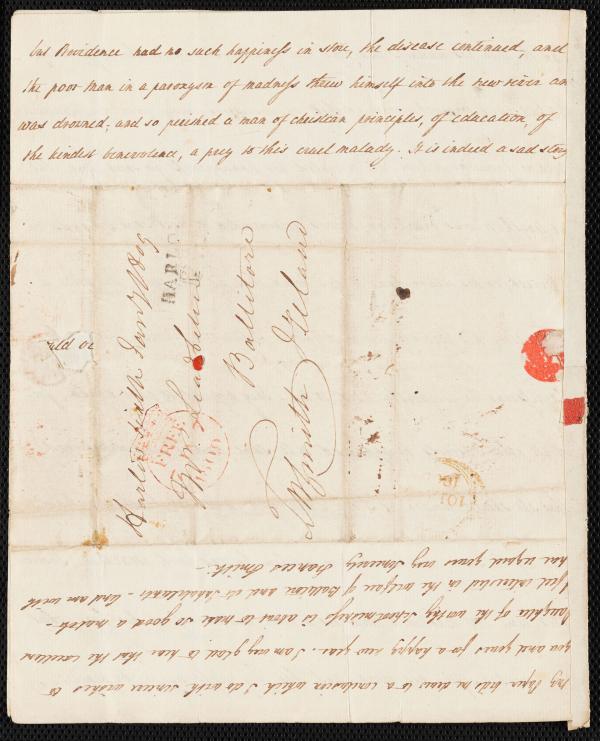 but Providence had no such happiness in store, the disease continued, and
the poor man in a paroxysm of madness threw himself into the new river an
was drowned, and so perished a man of christian principles, of education, of
the kindest benevolence, a prey to this cruel malady. It is indeed a sad story
HARL
Harleston
Leadbeater
Ballitore
Ireland
Smith
FREE
my Paper bids me draw to a conclusion which I do with sincere wishes to
you and yours for a happy new year. I am very glad to hear that the excellent
daughter of the worthy Schoolmistress is about to have so good a match -
I feel interested in the welfare of Ballitore and its Inhabitants - And am with
true regard yours very sincerely Frances Smith -